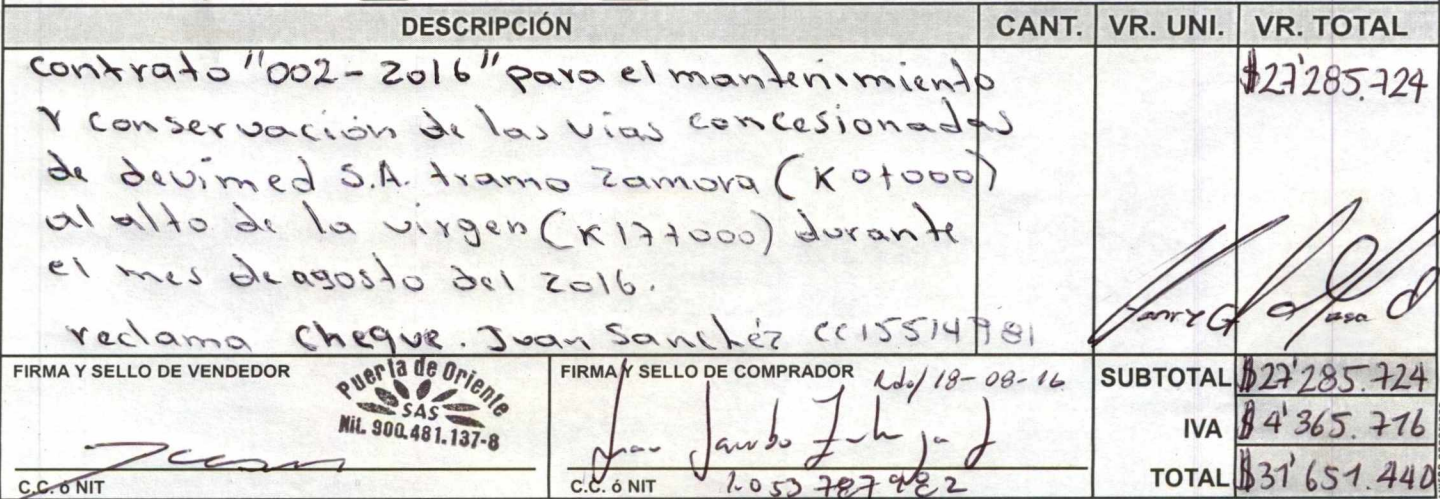 DESCRIPCIÓN CANT. VR. UNI. VR. TOTAL
Contrato "002-2016" para el mantenimiento $27'285.724
Y conservación de las vías concesionadas
de devimed S.A. tramo Zamora (K 0+000)
al alto de la virgen (K 17+000) durante
el mes de agosto del 2016.
reclama Cheque. Juan Sanchéz CC15514781
FIRMA Y SELLO DE VENDEDOR
Puerta de Oriente
SAS
Nit. 900.481.137-8
C.C. ó NIT
FIRMA Y SELLO DE COMPRADOR 18-08-16
C.C. ó NIT
SUBTOTAL $27'285.724
IVA $4'365.716
TOTAL $31'651.440